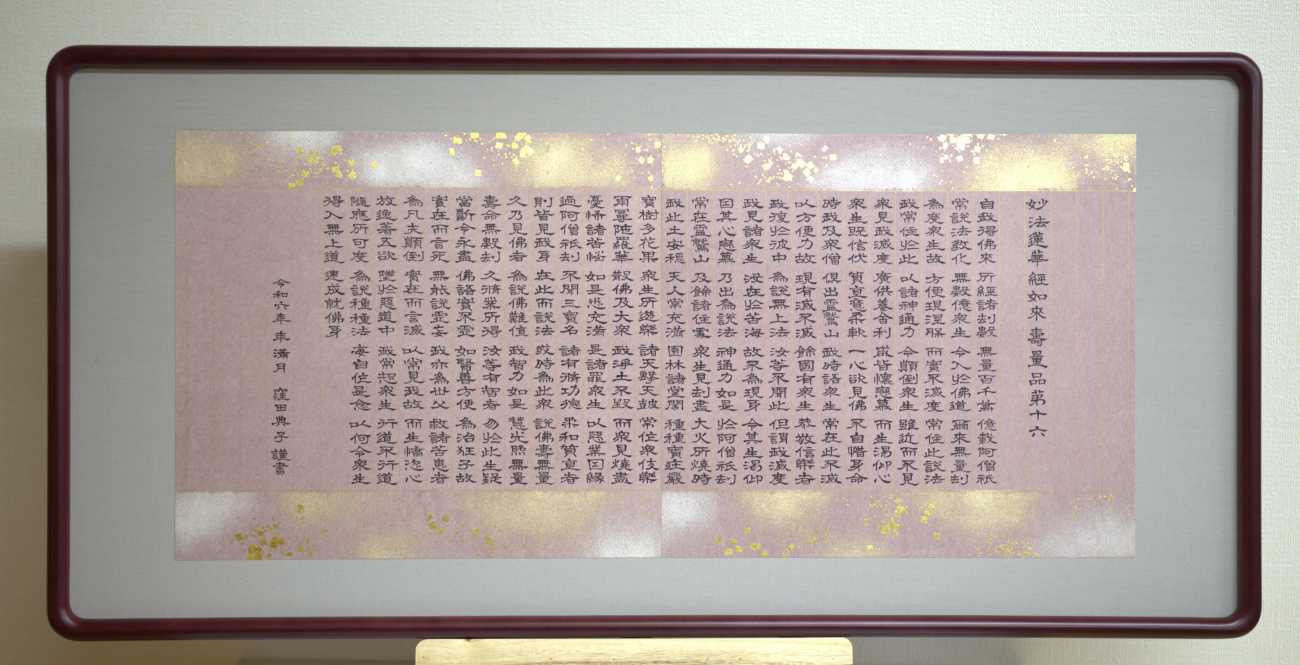 妙法蓮華經如來壽量品第十六
自我得佛來 所經諸劫數 無量百千萬 億載阿僧祇
常說法教化 無數億衆生 令入於佛道 爾來無量劫
為度衆生故 方便現涅槃 而實不滅度 常住此說法
我常住於此 以諸神通力 令顛倒衆生 雖近而不見
衆見我滅度 廣供養舍利 咸皆懷戀慕 而生渴仰心
衆生既信伏 質直意柔軟 一心欲見佛 不自惜身命
時我及衆僧 俱出靈鷲山 我時語衆生 常在此不滅
以方便力故 現有滅不滅 餘國有衆生 恭敬信樂者
我復於彼中 為說無上法 汝等不聞此 但謂我滅度
我見諸衆生 没在於苦海 故不為現身 令其生渴仰
因其心戀慕 乃出為說法 神通力如是 於阿僧祇劫
常在靈鷲山 及餘諸住處 衆生見劫盡 大火所燒時
我此土安穩 天人常充滿 園林諸堂閣 種種寶莊嚴
寶樹多花果 衆生所遊樂 諸天擊天鼓 常作衆伎樂
雨曼陀羅華 散佛及大衆 我淨土不毀 而衆見燒盡
憂怖諸苦惱 如是悉充滿 是諸罪衆生 以惡業因緣
過阿僧祇劫 不聞三寶名 諸有修功德 柔和質直者
則皆見我身 在此而說法 或時為此衆 說佛壽無量
久乃見佛者 為說佛難值 我智力如是 慧光照無量
壽命無數劫 久修業所得 汝等有智者 勿於此生疑
當斷令永盡 佛語實不虛 如醫善方便 為治狂子故
實在而言死 無能說虛妄 我亦為世父 救諸苦患者
為凡夫顛倒 實在而言滅 以常見我故 而生憍恣心
放逸著五欲 墮於惡道中 我常知衆生 行道不行道
隨應所可度 為說種種法 每自作是念 以何令衆生
得入無上道 速成就佛身
令和六年 満月 窪田典子 謹書